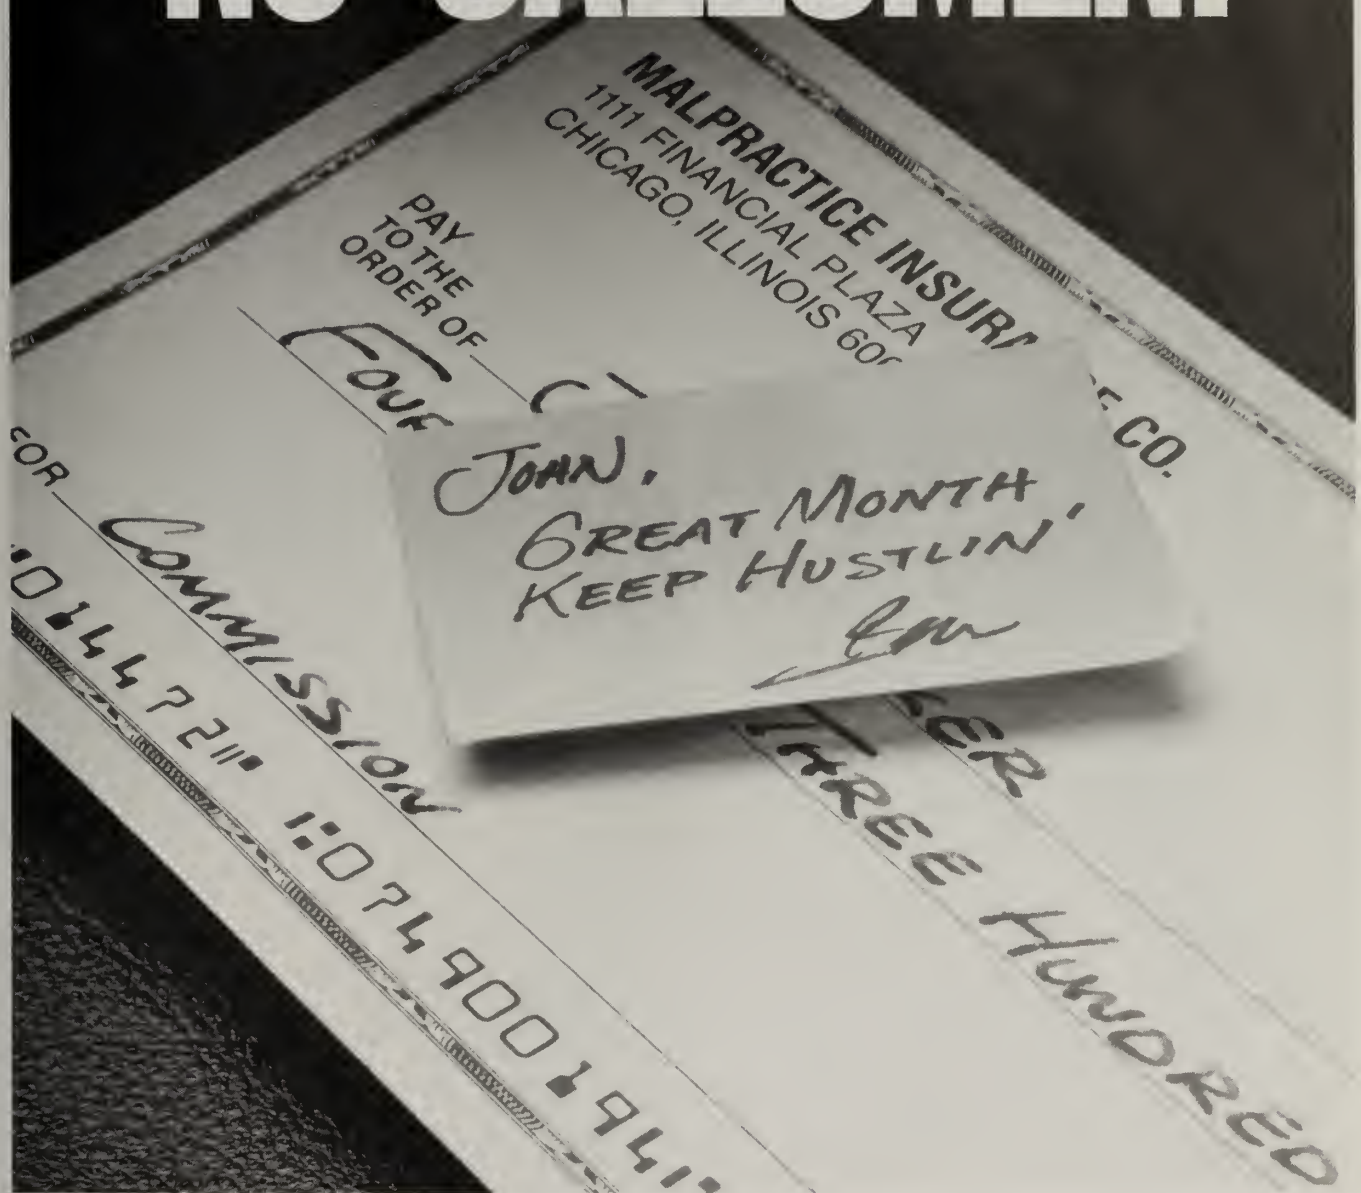 NO SALESMEN
MALPRACTICE INSURA CE CO.
1111 FINANCIAL PLAZA
CHICAGO, ILLINOIS 60
PAY
TO THE
ORDER OF
SER
FOUR
THREE HUNDRED
JOHN,
GREAT MONTH,
KEEP HUSTLIN'
FOR COMMISSION
⑈014472⑈ ⑆074900194⑆